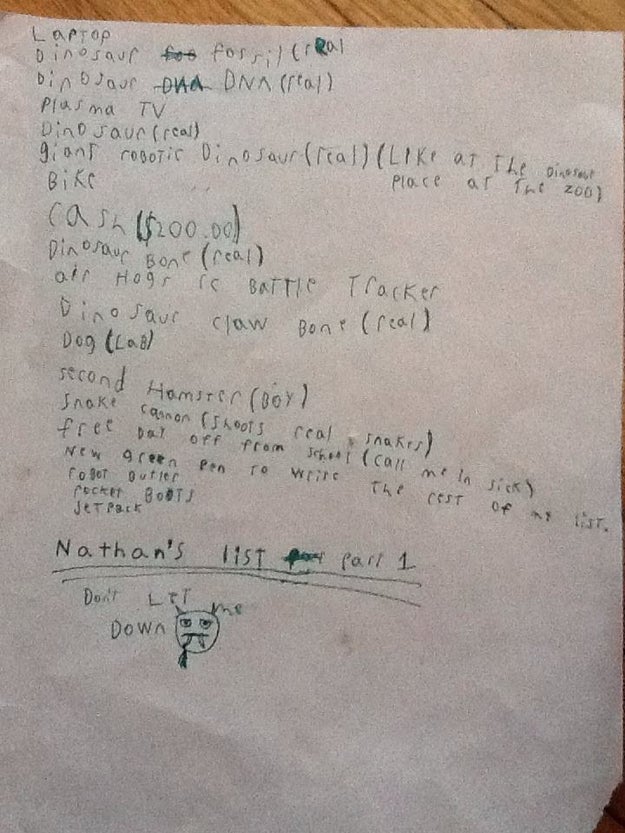 LAPTOP
Dinosaur fossil (real
Dinosaur DNA (real)
Plasma TV
Dinosaur (real)
giant robotic Dinosaur (real) (Like at the Dinosaur
Place at the zoo)
Bike
cash ($200.00)
Dinosaur Bone (real)
air Hogs rc Battle Tracker
Dinosaur claw Bone (real)
Dog (Lab)
second Hamster (Boy)
snake cannon (shoots real snakes)
free Day off from school (call me in sick)
New green Pen to write the rest of my list.
robot Butler
rocket Boots
Jetpack
Nathan's list part 1
Don't Let me
Down